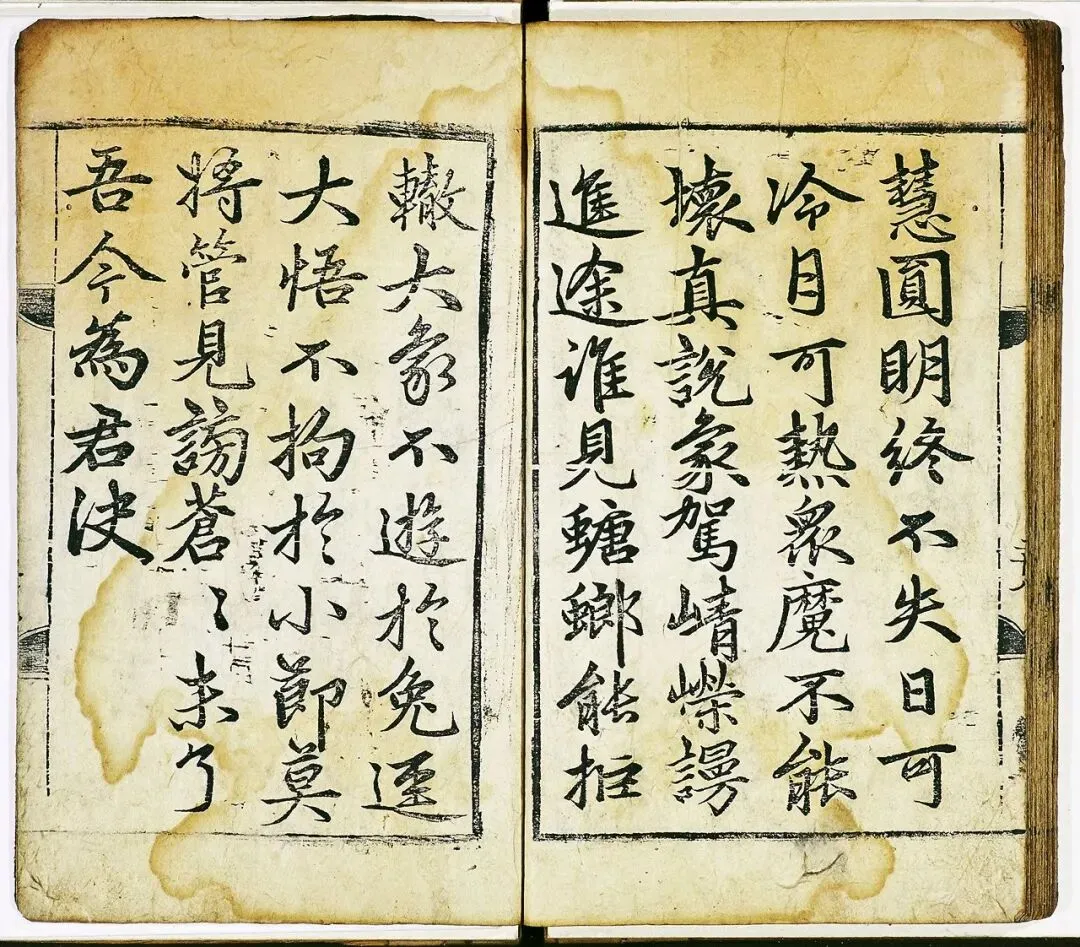 慧圓明終不失日可
冷月可熱衆魔不能
壞真說象駕崝嶸謾
進途誰見螗螂能拒
轍大象不遊於兔逕
大悟不拘於小節莫
將管見謗蒼〻未了
吾今為君決